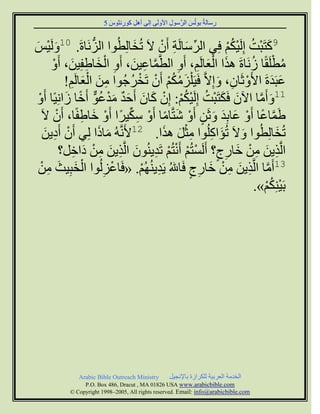 رسالة بولس الرسول الأولى إلى أهل كورنثوس 5
9كَتَبْتُ إِلَيْكُمْ فِي الرِّسَالَةِ أَنْ لاَ تُخَالِطُوا الزُّنَاةَ. 10وَلَيْسَ
مُطْلَقًا زُنَاةَ هذَا الْعَالَمِ، أَوِ الطَّمَّاعِينَ، أَوِ الْخَاطِفِينَ، أَوْ
عَبَدَةَ الأَوْثَانِ، وَإِلاَّ فَيَلْزَمُكُمْ أَنْ تَخْرُجُوا مِنَ الْعَالَمِ!
11وَأَمَّا الآنَ فَكَتَبْتُ إِلَيْكُمْ: إِنْ كَانَ أَحَدٌ مَدْعُوٌّ أَخًا زَانِيًا أَوْ
طَمَّاعًا أَوْ عَابِدَ وَثَنٍ أَوْ شَتَّامًا أَوْ سِكِّيرًا أَوْ خَاطِفًا، أَنْ لاَ
تُخَالِطُوا وَلاَ تُؤَاكِلُوا مِثْلَ هذَا. 12لأَنَّهُ مَاذَا لِي أَنْ أَدِينَ
الَّذِينَ مِنْ خَارِجٍ؟ أَلَسْتُمْ أَنْتُمْ تَدِينُونَ الَّذِينَ مِنْ دَاخِل؟
13أَمَّا الَّذِينَ مِنْ خَارِجٍ فَاللهُ يَدِينُهُمْ. «فَاعْزِلُوا الْخَبِيثَ مِنْ
بَيْنِكُمْ».
Arabic Bible Outreach Ministry الخدمة العربية للكرازة بالإنجيل
P.O. Box 486, Dracut , MA 01826 USA www.arabicbible.com
© Copyright 1998–2005, All rights reserved. Email: info@arabicbible.com